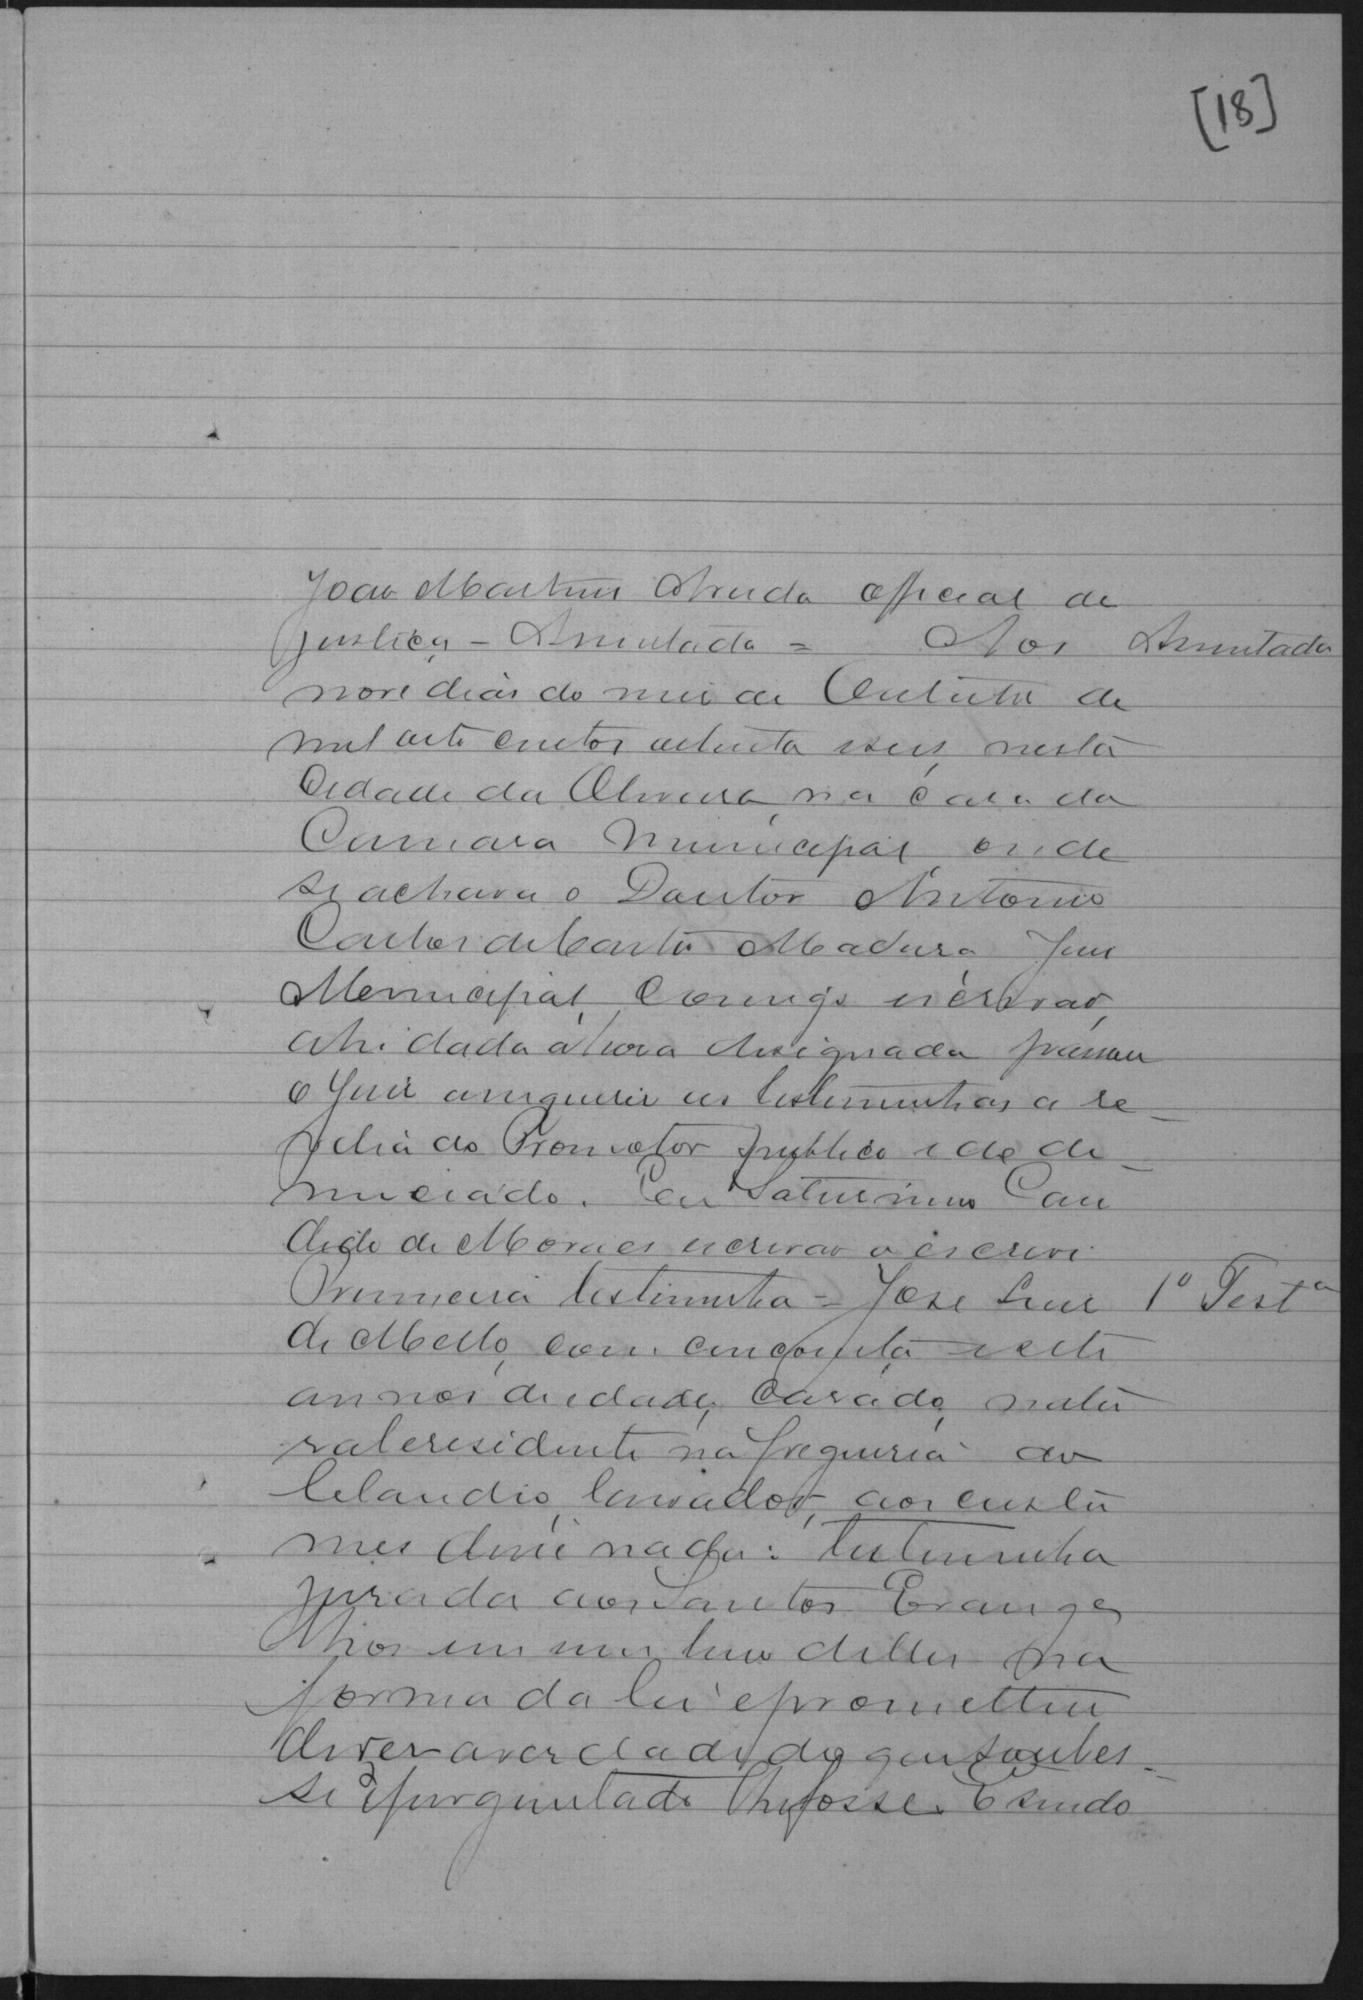 [18]
João Martins Arruda official de
justiça – Assentada = Aos Assentada
nove dias do mes de Outubro de
mil oito centos oitenta e seis, nesta
Cidade da Oliveira, na casa da
Camara Municipal, onde
se achava o Doutor Antonio
Carlos de Castro Madura Juiz
Municipal, comigo escrivão,
ahi dada a hora designada passou
o Juiz a inquerir as testemunhas a re-
velia do Promotor publico e do de-
nunciado. Eu Saturnino Can
dido de Moraes escrivão o escrevi.
Primeira testemunha = José Luis 1º Testª
de Mello, com cincoenta e sete
annos de edade, casado, natu
ral e residente na freguesia do
Claudio, lavrador, aos custu
mes disse nada: testemunha
jurada aos Santos Evange
lhos em um livro delles na
forma da lei e prometteu
diser a verdade do que soubes-
se e perguntado lhe fosse. E sendo